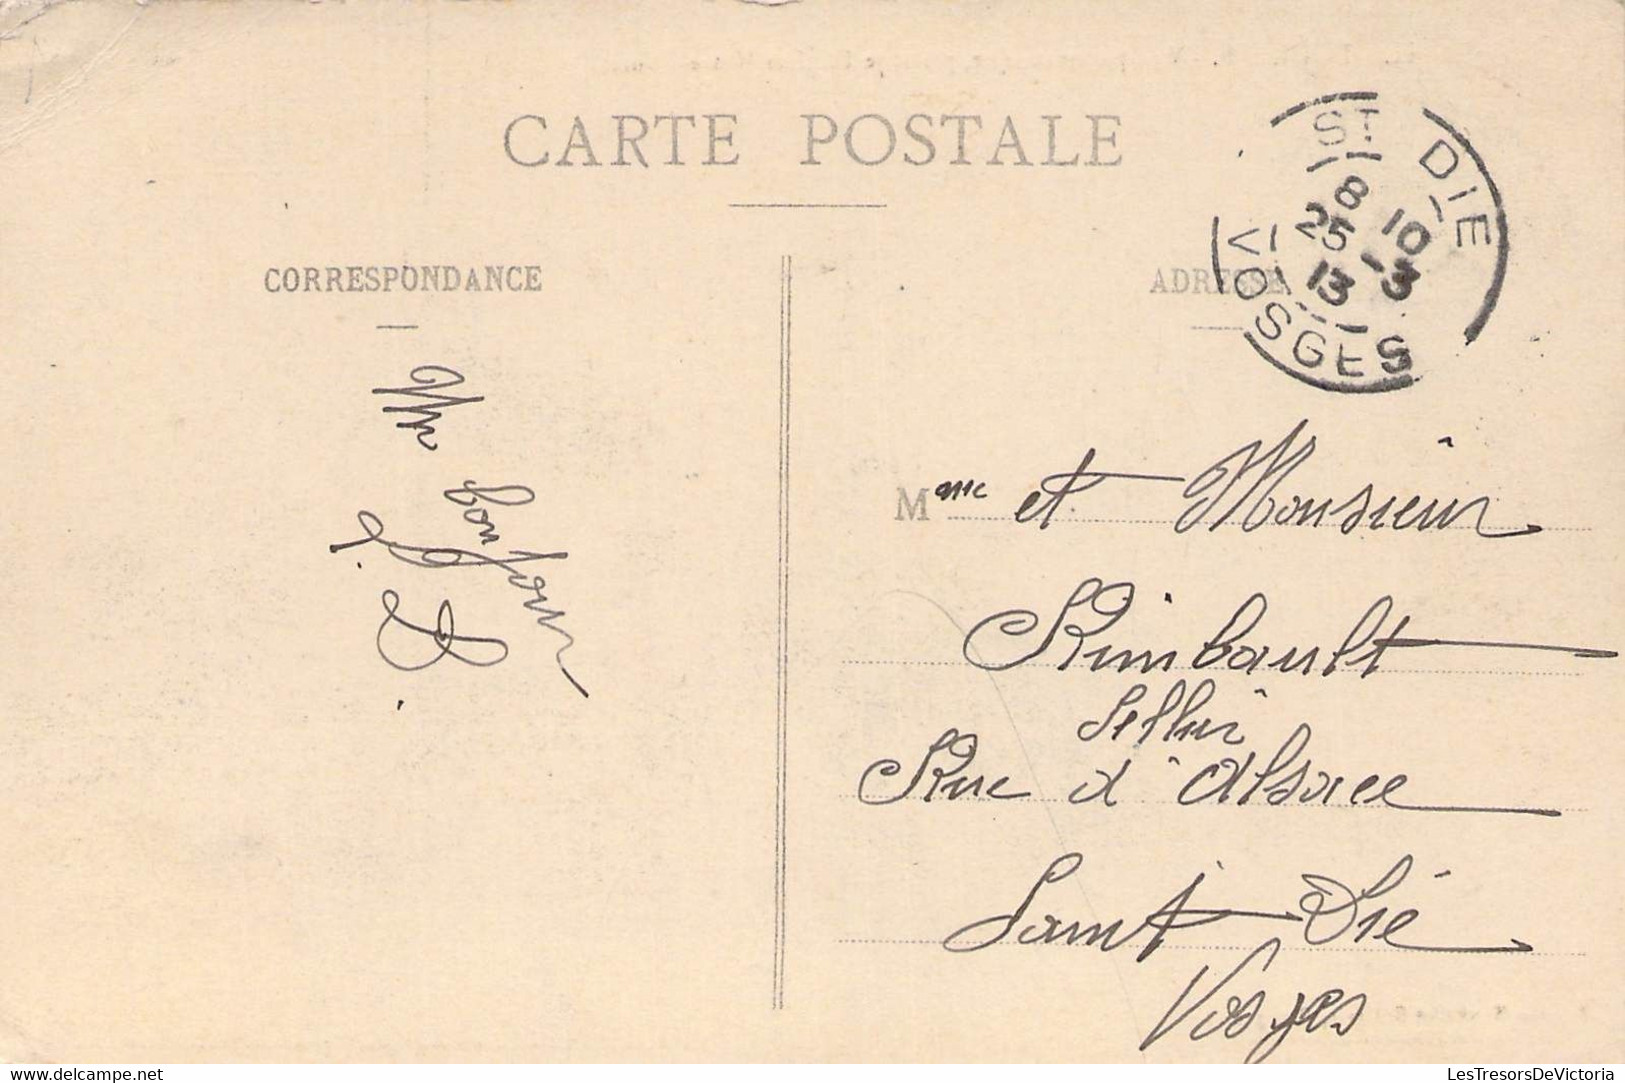 CARTE POSTALE
CORRESPONDANCE
ADRESSE
ST DIE
8 10
25 - 3
13
VOSGES
Un bonjour
L. D.
Mme et Monsieur
Rimbault
Sellier
Rue d'Alsace
Saint Dié
Vosges
LesTresorsDeVictoria.delcampe.net
LesTresorsDeVictoria